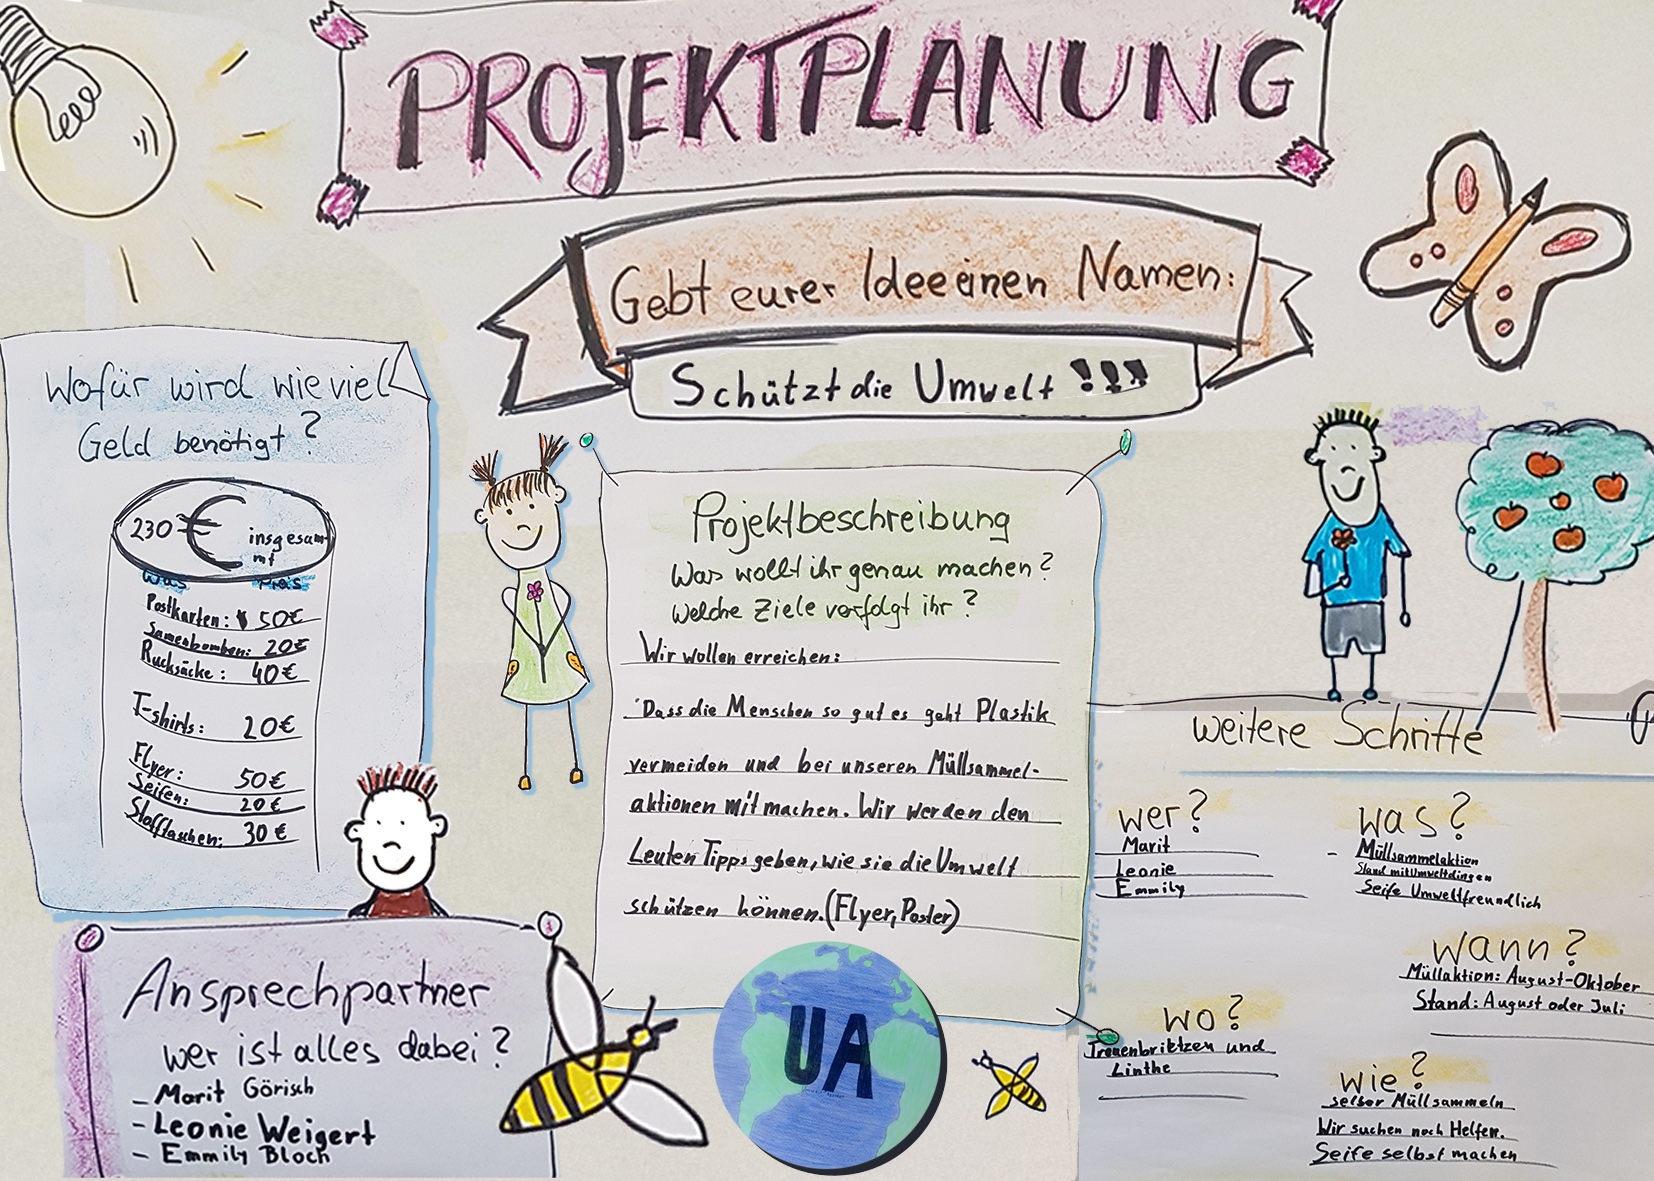 PROJEKTPLANUNG
Gebt eurer Idee einen Namen:
Schützt die Umwelt !!!
Wofür wird wie viel
Geld benötigt?
230 €
insgesam-
mt
Was Preis
Postkarten: 50€
Samenbomben: 20€
Rucksäcke: 40€
T-shirts: 20€
Flyer: 50€
Seifen: 20€
Stofftaschen: 30€
Projektbeschreibung
Was wollt ihr genau machen?
Welche Ziele verfolgt ihr?
Wir wollen erreichen:
Dass die Menschen so gut es geht Plastik
vermeiden und bei unseren Müllsammel-
aktionen mitmachen. Wir werden den
Leuten Tipps geben, wie sie die Umwelt
schützen können. (Flyer, Poster)
Ansprechpartner
wer ist alles dabei?
- Marit Görisch
- Leonie Weigert
- Emmily Bloch
UA
weitere Schritte
wer?
Marit
Leonie
Emmily
was?
- Müllsammelaktion
Stand mit Umweltdingen
Seife Umweltfreundlich
wann?
Müllaktion: August-Oktober
Stand: August oder Juli
wo?
Treuenbrietzen und
Linthe
wie?
selber Müllsammeln
Wir suchen noch Helfer.
Seife selbst machen